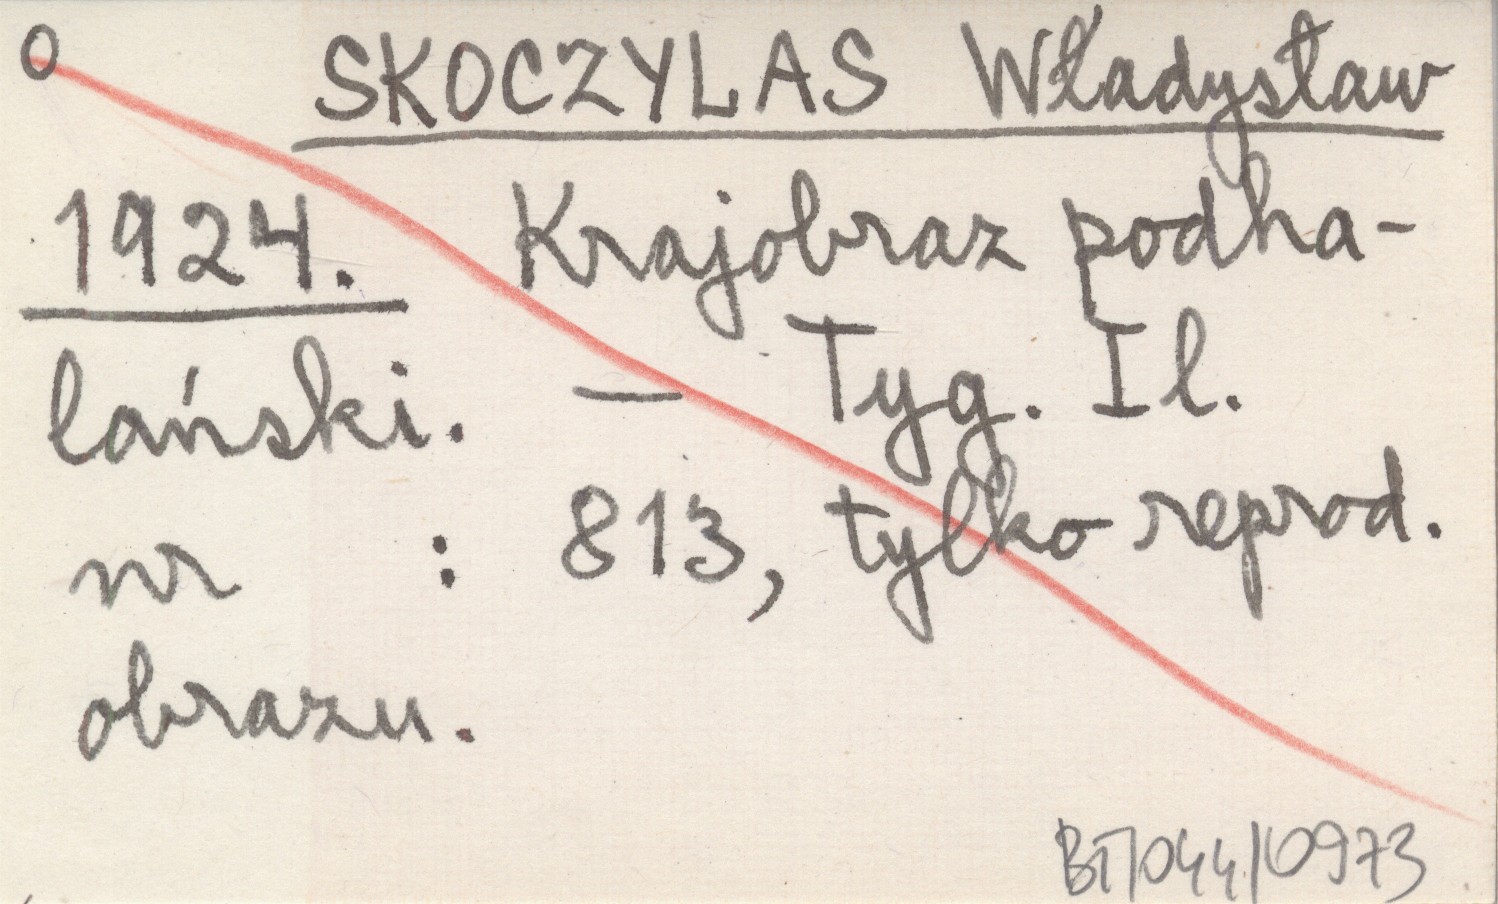 O SKOCZYLAS Władysław
1924. Krajobraz podha-
lański. — Tyg. Il.
nr : 813, tylko reprod.
obrazu.
BT/044/0973